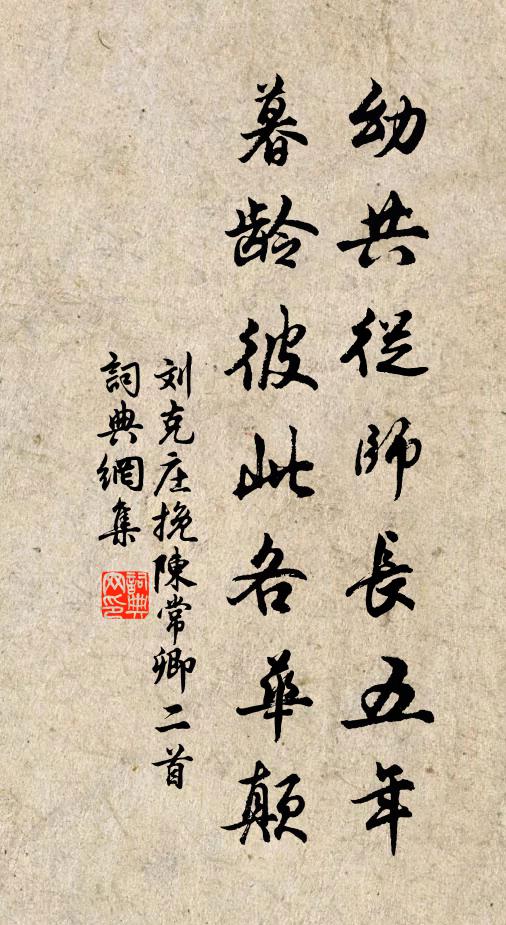 幼共從師長五年
暮龄彼此各華顛
刘克庄挽陳常卿二首
詞典網集
詞典網印